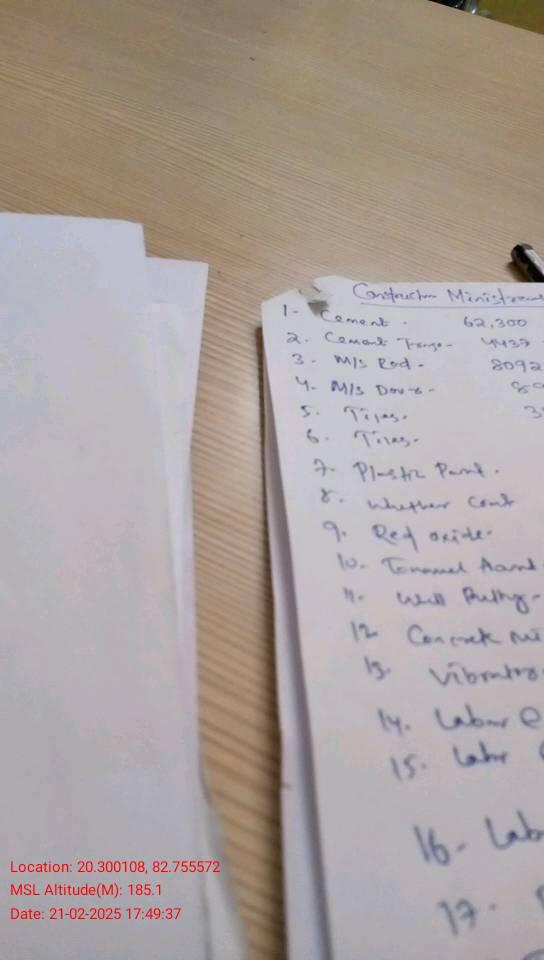 Construction
1- Cement. 62,300
2. Cement 4437
3. M/s Rod - 8092
4. M/s
5. Tiles.
6. Tiles.
7. Plastic Paint.
8. Whether Cont
9. Red oxide.
10.
11. Wall Putty-
12. Concrete Mi
13. Vibrator
14. Labour
15. Labr
16- Lab
17.
Location: 20.300108, 82.755572
MSL Altitude(M): 185.1
Date: 21-02-2025 17:49:37